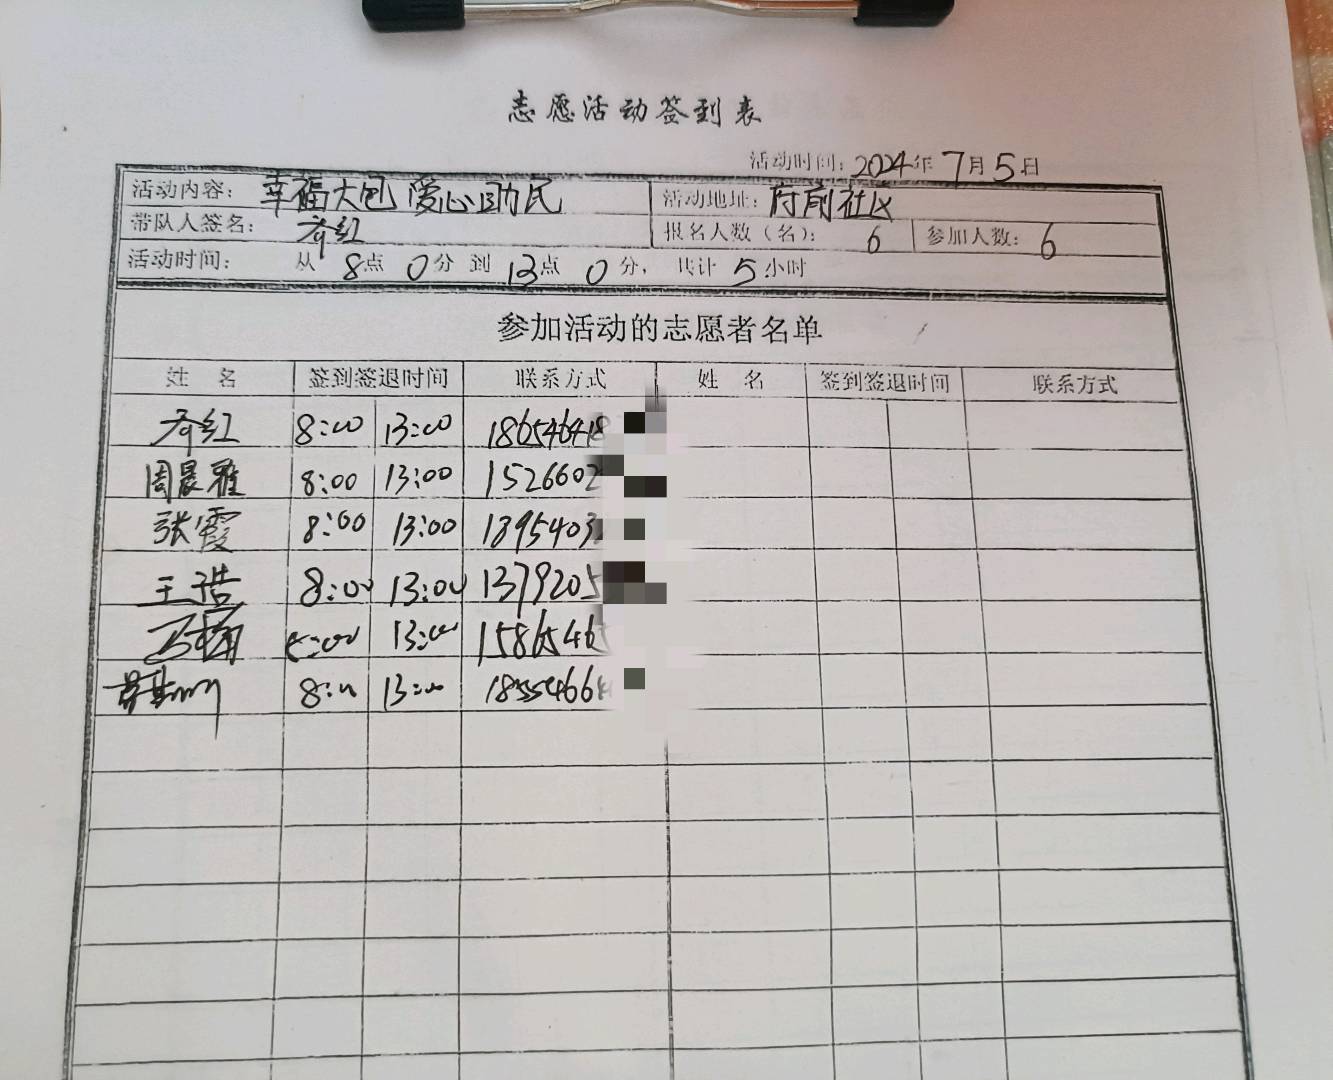 志愿活动签到表
活动时间: 2024年7月5日
活动内容: 幸福大包 爱心助民 活动地址: 府前社区
带队人签名: 报名人数(名): 6 参加人数: 6
活动时间: 从 8点 0分 到 13点 0分, 共计 5小时
参加活动的志愿者名单
姓 名 签到签退时间 联系方式 姓 名 签到签退时间 联系方式
8:00 13:00 186546418
周晨雅 8:00 13:00 1526602
张霞 8:00 13:00 1895403
王浩 8:00 13:00 1379205
8:00 13:00 15865465
8:00 13:00 18554664